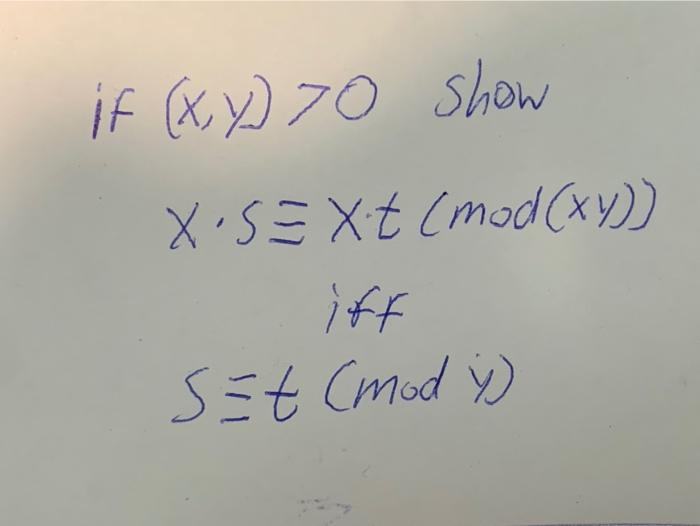 if (x,y) >0 show
x·s≡x·t (mod(xy))
iff
s≡t (mod y)